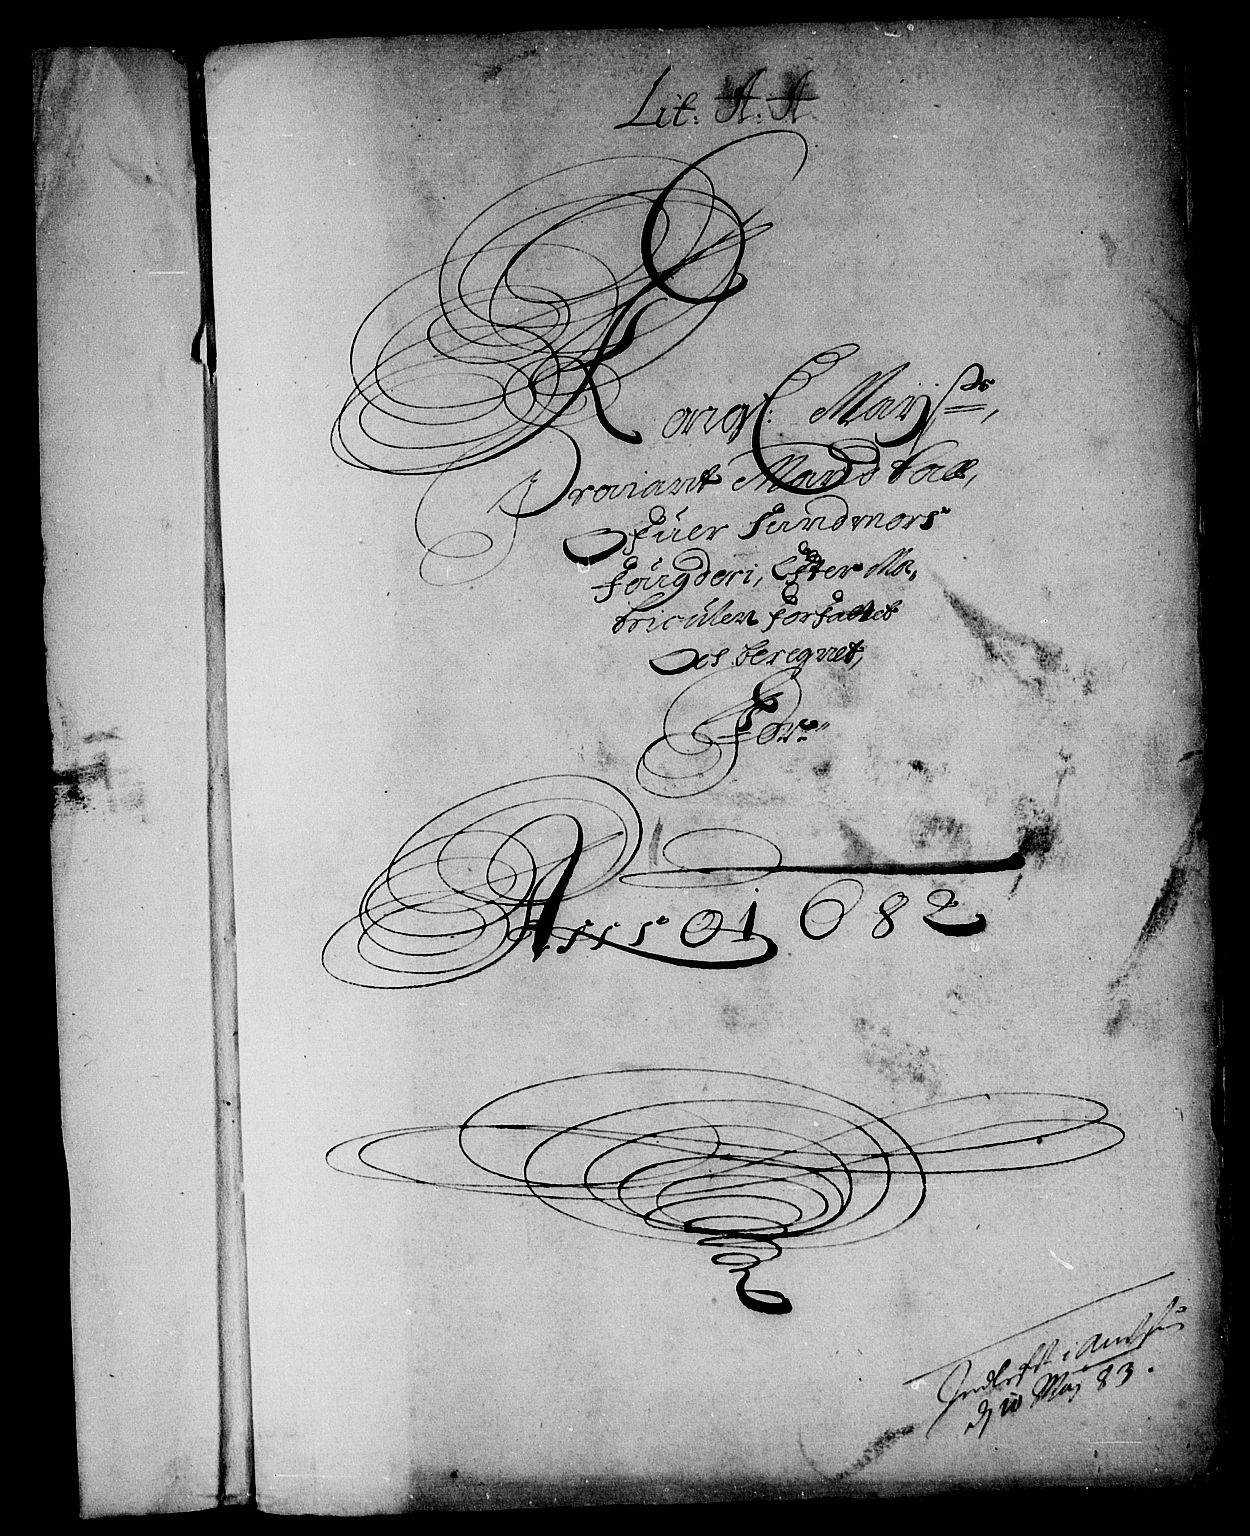 Lit: A. A.
Kongl: Maysts,
Proviant Mandtall,
Ofuer Sundmørs
Fougderi, Efter Ma,
triculen forfattet
Och beregnet,
For
Anno 1682
Indleft i
d 10 Maj 83.